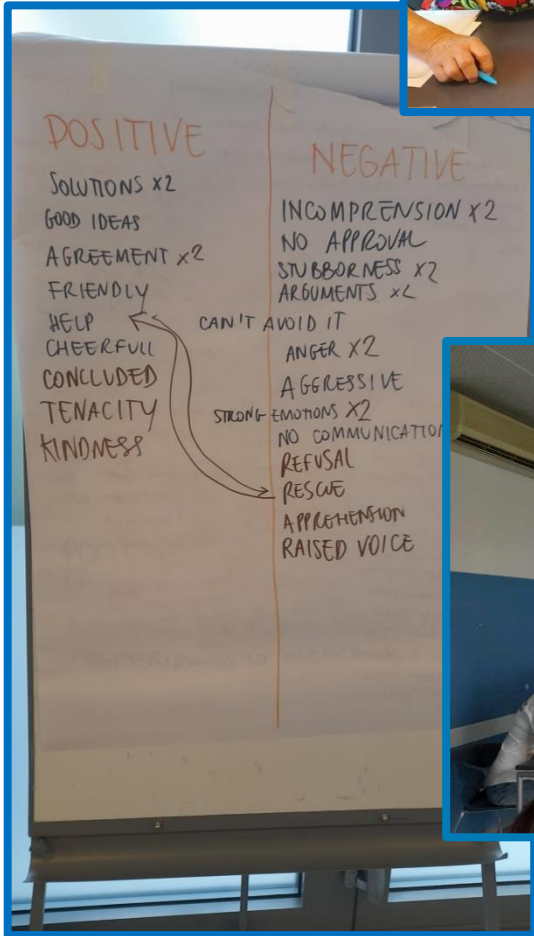 POSITIVE
SOLUTIONS x2
GOOD IDEAS
AGREEMENT x2
FRIENDLY
HELP
CHEERFULL
CONCLUDED
TENACITY
KINDNESS
NEGATIVE
INCOMPRENSION x2
NO APPROVAL
STUBBORNESS x2
ARGUMENTS x2
CAN'T AVOID IT
ANGER x2
AGGRESSIVE
STRONG EMOTIONS x2
NO COMMUNICATION
REFUSAL
RESCUE
APPREHENSION
RAISED VOICE